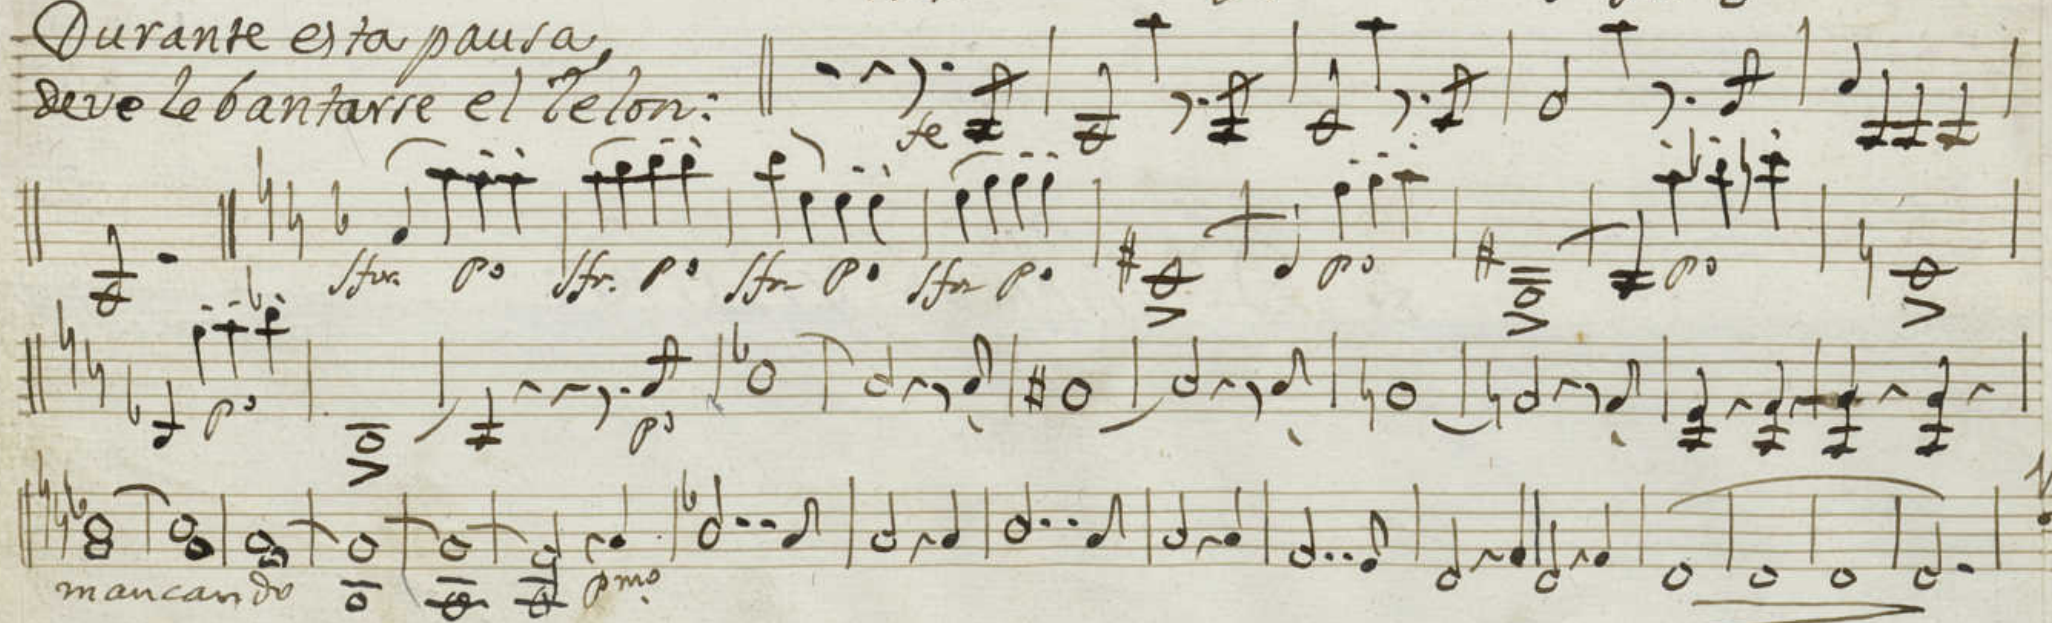 Durante esta pausa,
deve lebantarse el Telon:
fe
sfor. po sfr. po sfor po sfor po po po
po po
mancando pmo.